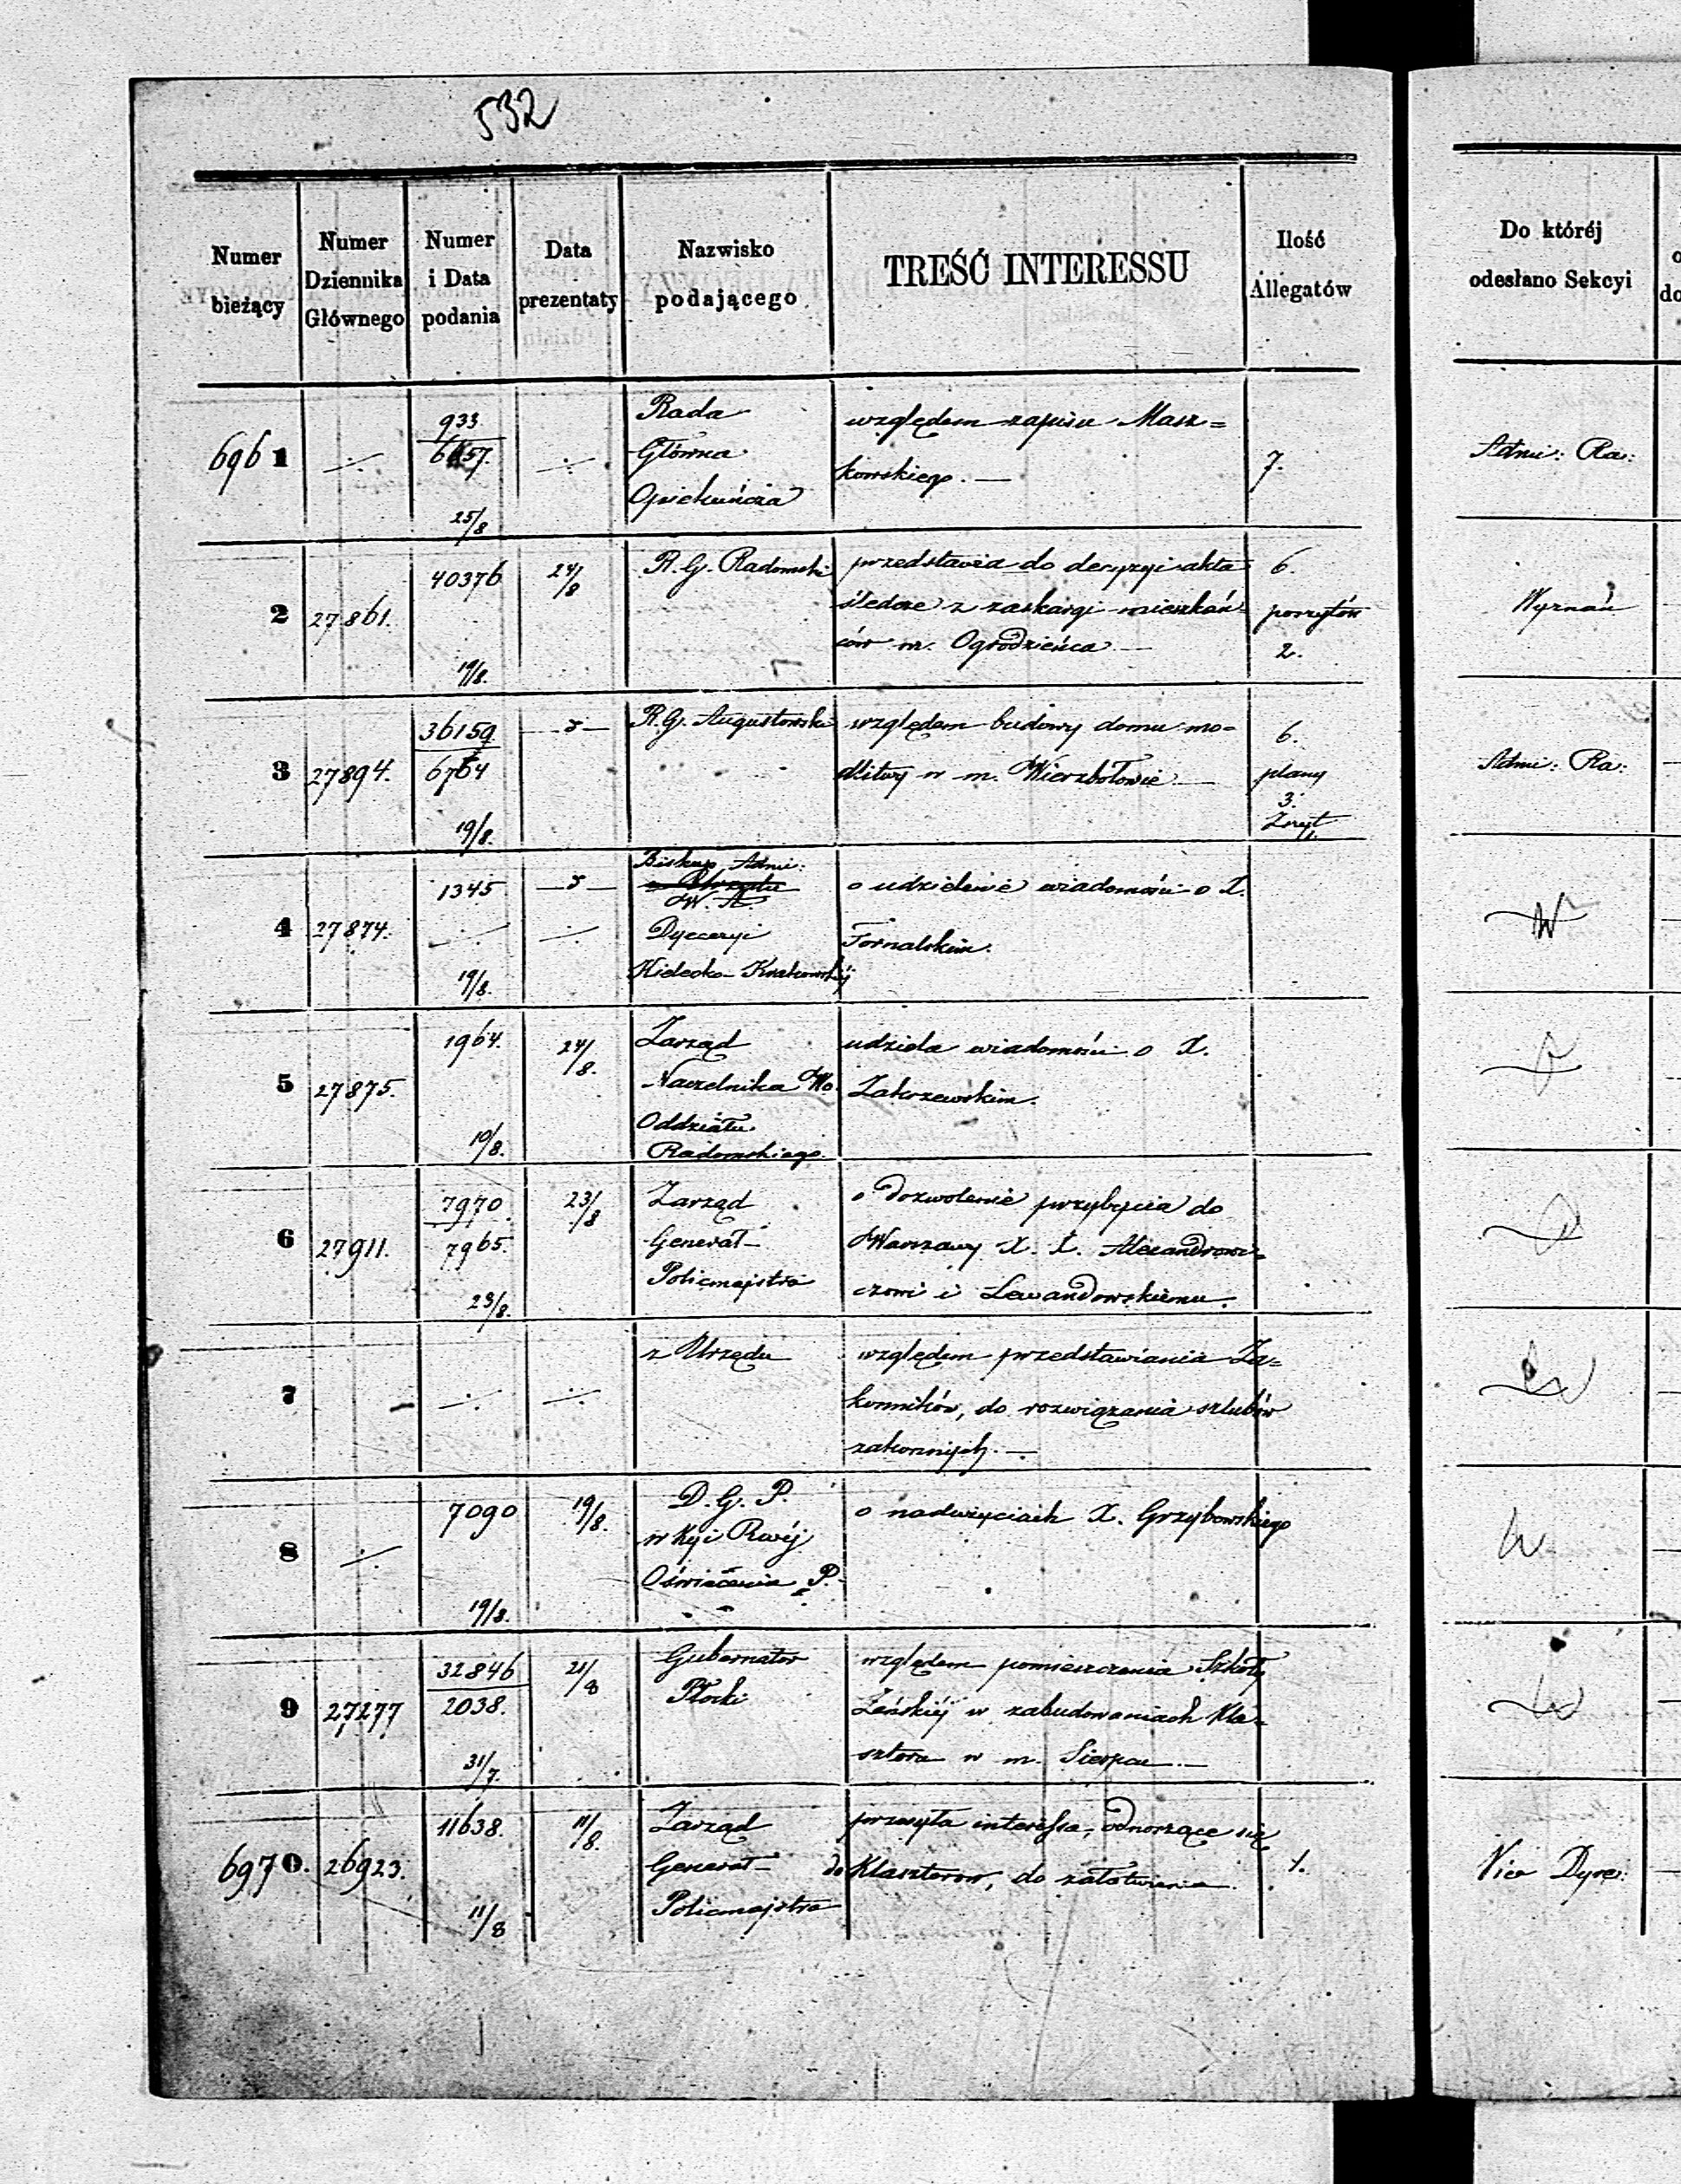 532
Numer bieżący
Numer Dziennika Głównego
Numer i Data podania
Data prezentaty
Nazwisko podającego
TREŚĆ INTERESSU
Ilość Allegatów
Do któréj odesłano Sekcyi
6961
933
25/8
Rada
Główna
Opiekuńcza
względem zapisu Masz=
kowskiego. —
7.
Admi: Ra:
2
27861.
40376
19/8.
24/8
R. G. Radomski
przedstawia do decyzyi akta
śledcze z zaskargi mieszkań=
ców m. Ogrodzieńca —
6.
poszytów
2.
Wyznań
3
27894.
36159
6764
19/8.
R. G. Augustowski
względem budowy domu mo=
dlitwy w m. Wierzbołowie —
6.
plany
3.
Zeszyt
Admi: Ra:
4
27874.
1345
19/8.
Biskup Admi:
Dyecezyi
Kielecko-Krakowskiéj
o udzielenie wiadomości o X.
Fornalskim.
W
5
27875.
1964.
10/8.
24/8.
Zarząd
Naczelnika Wo
Oddziału
Radomskiego.
udziela wiadomości o X.
Zakrzewskim.
6
27911.
7970
7965.
23/8.
23/8
Zarząd
Generał-
Policmajstra
o dozwolenie przybycia do
Warszawy X. X. Alexandrowi=
czowi i Lewandowskiemu.
7
z Urzędu
względem przedstawiania Za=
konników, do rozwiązania szlubów
zakonnych. —
8
7090
19/8.
19/8.
D. G. P.
w Kyi Rwéj
Oświécenia P.
o nadużyciach X. Grzybowskiego
W
9
27277
32846
2038.
31/7.
21/8
Gubernator
Płocki
względem pomieszczenia Szkoły
Żeńskiéj w zabudowaniach Kla=
sztoru w m. Sierpcu —
6970.
26923.
11638.
11/8
11/8.
Zarząd
Generał-
Policmajstra
przesyła interessa, odnoszące się
do Klasztorów, do załatwienia.
1.
Vice Dyre: